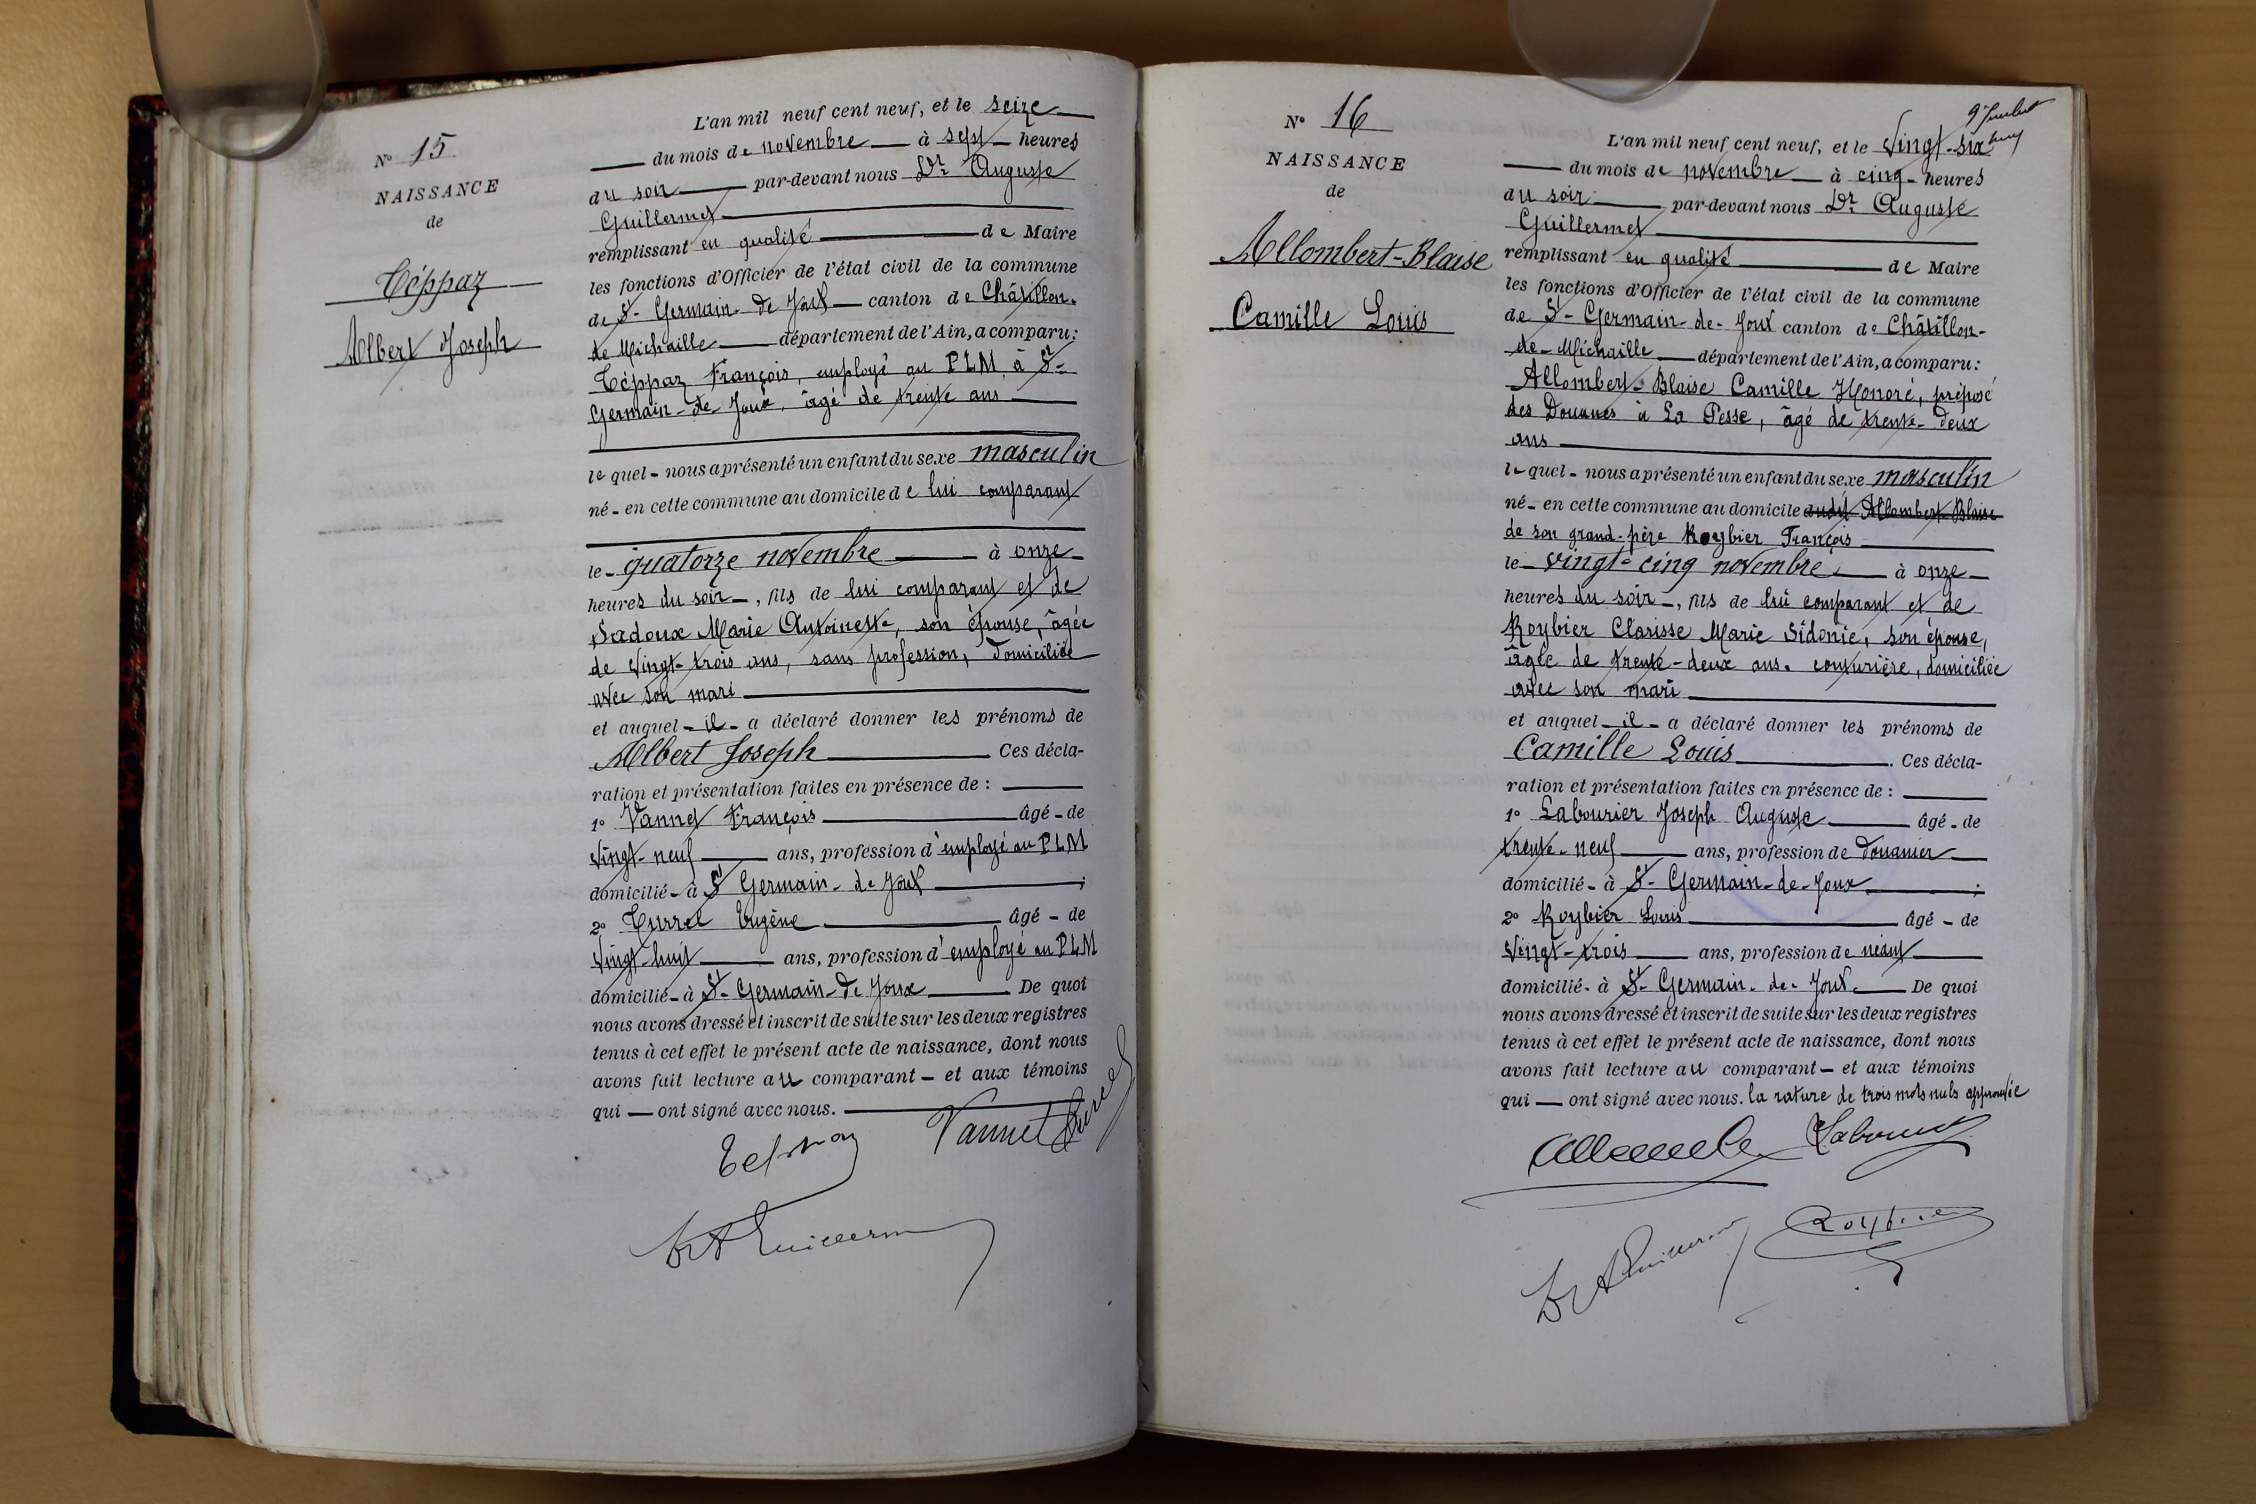 N° 15
NAISSANCE
de
Téppaz
Albert Joseph
L'an mil neuf cent neuf, et le seize
du mois de novembre à sept heures
du soir par-devant nous Dr Auguste
Guillermet
remplissant en qualité de Maire
les fonctions d'Officier de l'état civil de la commune
de St-Germain-de Joux canton de Châtillon-
de Michaille département de l'Ain, a comparu:
Téppaz François, employé au PLM, à St-
Germain-de Joux, âgé de trente ans
lequel - nous a présenté un enfant du sexe masculin
né - en cette commune au domicile de lui comparant
le - quatorze novembre à onze
heures du soir -, fils de lui comparant et de
Sadoux Marie Antoinette, son épouse, âgée
de vingt-trois ans, sans profession, domiciliée
avec son mari
et auquel - il - a déclaré donner les prénoms de
Albert Joseph Ces décla-
ration et présentation faites en présence de :
1° Vannet François âgé - de
vingt-neuf ans, profession d'employé au PLM
domicilié - à St Germain-de Joux ;
2° Turrel Eugène âgé - de
vingt-huit ans, profession d'employé au PLM
domicilié - à St-Germain-de Joux De quoi
nous avons dressé et inscrit de suite sur les deux registres
tenus à cet effet le présent acte de naissance, dont nous
avons fait lecture au comparant - et aux témoins
qui — ont signé avec nous.
Vannet
Dr A Guillermet
N° 16
NAISSANCE
de
Allombert-Blaise
Camille Louis
L'an mil neuf cent neuf, et le vingt-six
du mois de novembre à cinq - heures
du soir par-devant nous Dr Auguste
Guillermet
remplissant en qualité de Maire
les fonctions d'Officier de l'état civil de la commune
de St-Germain-de-Joux canton de Châtillon-
de-Michaille département de l'Ain, a comparu:
Allombert-Blaise Camille Honoré, préposé
des Douanes à La Pesse, âgé de trente-deux
ans
lequel - nous a présenté un enfant du sexe masculin
né - en cette commune au domicile dudit Allombert-Blaise
de son grand-père Roybier François
le - vingt-cinq novembre à onze -
heures du soir -, fils de lui comparant et de
Roybier Clarisse Marie Sidonie, son épouse,
âgée de trente-deux ans, couturière, domiciliée
avec son mari
et auquel - il - a déclaré donner les prénoms de
Camille Louis . Ces décla-
ration et présentation faites en présence de :
1° Labourier Joseph Auguste âgé - de
trente-neuf ans, profession de douanier
domicilié - à St-Germain-de-Joux ;
2° Roybier Louis âgé - de
vingt-trois ans, profession de néant
domicilié - à St-Germain-de-Joux De quoi
nous avons dressé et inscrit de suite sur les deux registres
tenus à cet effet le présent acte de naissance, dont nous
avons fait lecture au comparant - et aux témoins
qui — ont signé avec nous. la rature de trois mots nuls approuvée
Labourier
Roybier
Dr A Guillermet